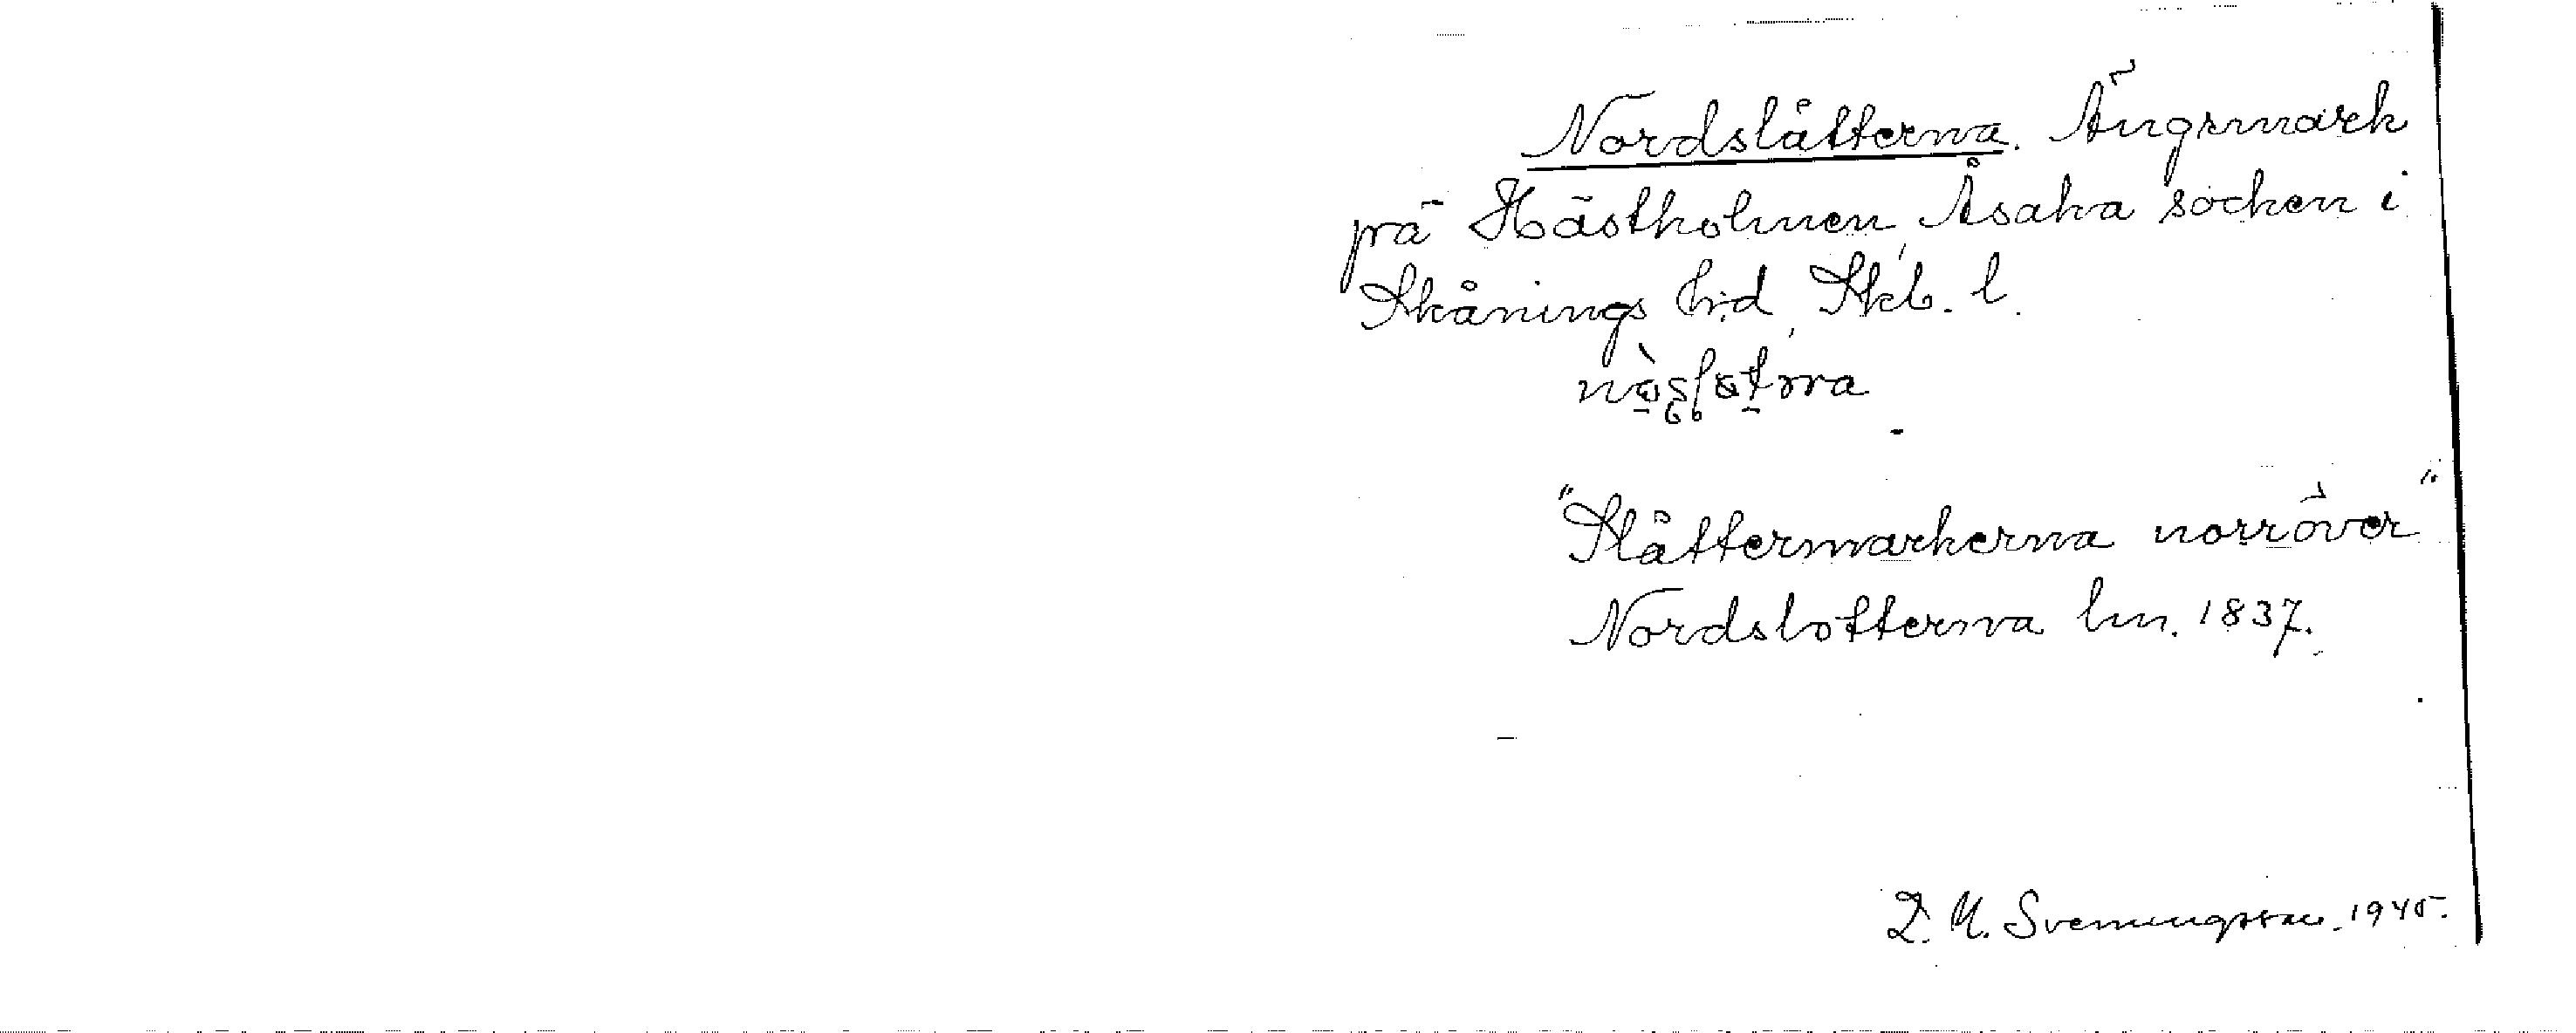 Nordslåtterna. Ängsmark
på Hästholmen, Åsaka socken i
Skånings h:d, Skb. l.
"Slåttermarkerna norröver"
Nordslotterna lm. 1837.
Svenningsson. 1945.